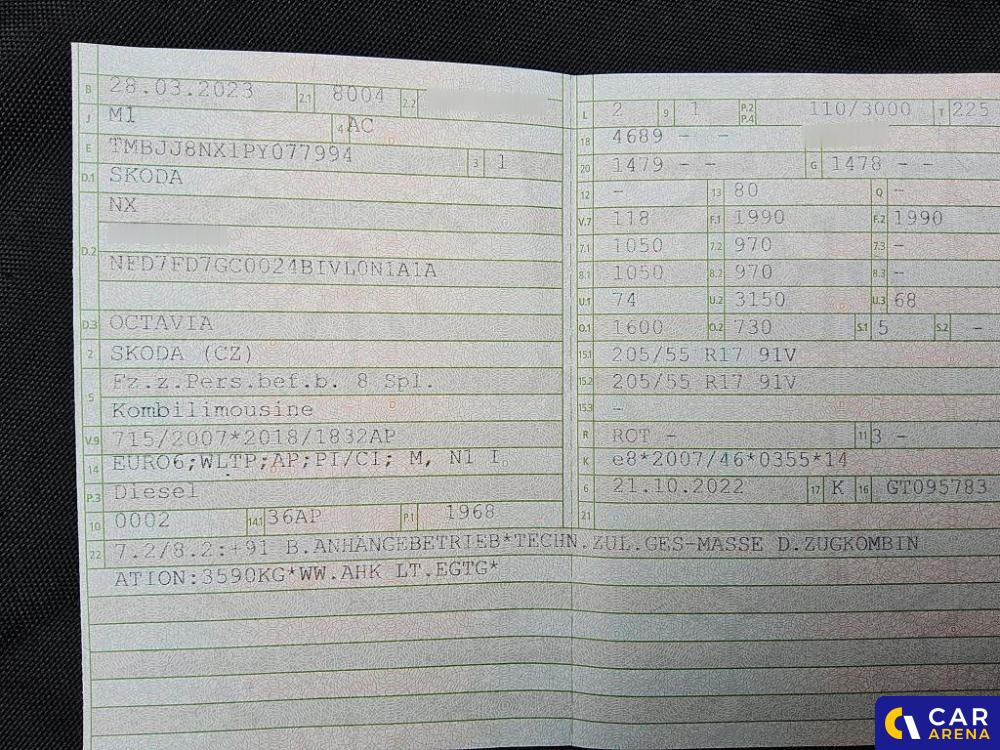 B 28.03.2023 2.1 8004 2.2
J M1 4 AC
E TMBJJ8NX1PY077994 3 1
D.1 SKODA
NX
D.2
NFD7FD7GC0024BIVL0N1A1A
D.3 OCTAVIA
2 SKODA (CZ)
5 Fz.z.Pers.bef.b. 8 Spl.
Kombilimousine
V.9 715/2007*2018/1832AP
14 EURO6;WLTP;AP;PI/CI; M, N1 I
P.3 Diesel
10 0002 14.1 36AP P.1 1968
L 2 9 1 P.2 P.4 110/3000 T 225
18 4689 - -
20 1479 - - G 1478 - -
12 - 13 80 Q -
V.7 118 F.1 1990 F.2 1990
7.1 1050 7.2 970 7.3 -
8.1 1050 8.2 970 8.3 -
U.1 74 U.2 3150 U.3 68
O.1 1600 O.2 730 S.1 5 S.2 -
15.1 205/55 R17 91V
15.2 205/55 R17 91V
15.3 -
R ROT - 11 3 -
K e8*2007/46*0355*14
6 21.10.2022 17 K 16 GT095783
21
22 7.2/8.2:+91 B.ANHÄNGEBETRIEB*TECHN.ZUL.GES-MASSE D.ZUGKOMBIN
ATION:3590KG*WW.AHK LT.EGTG*
CAR
ARENA